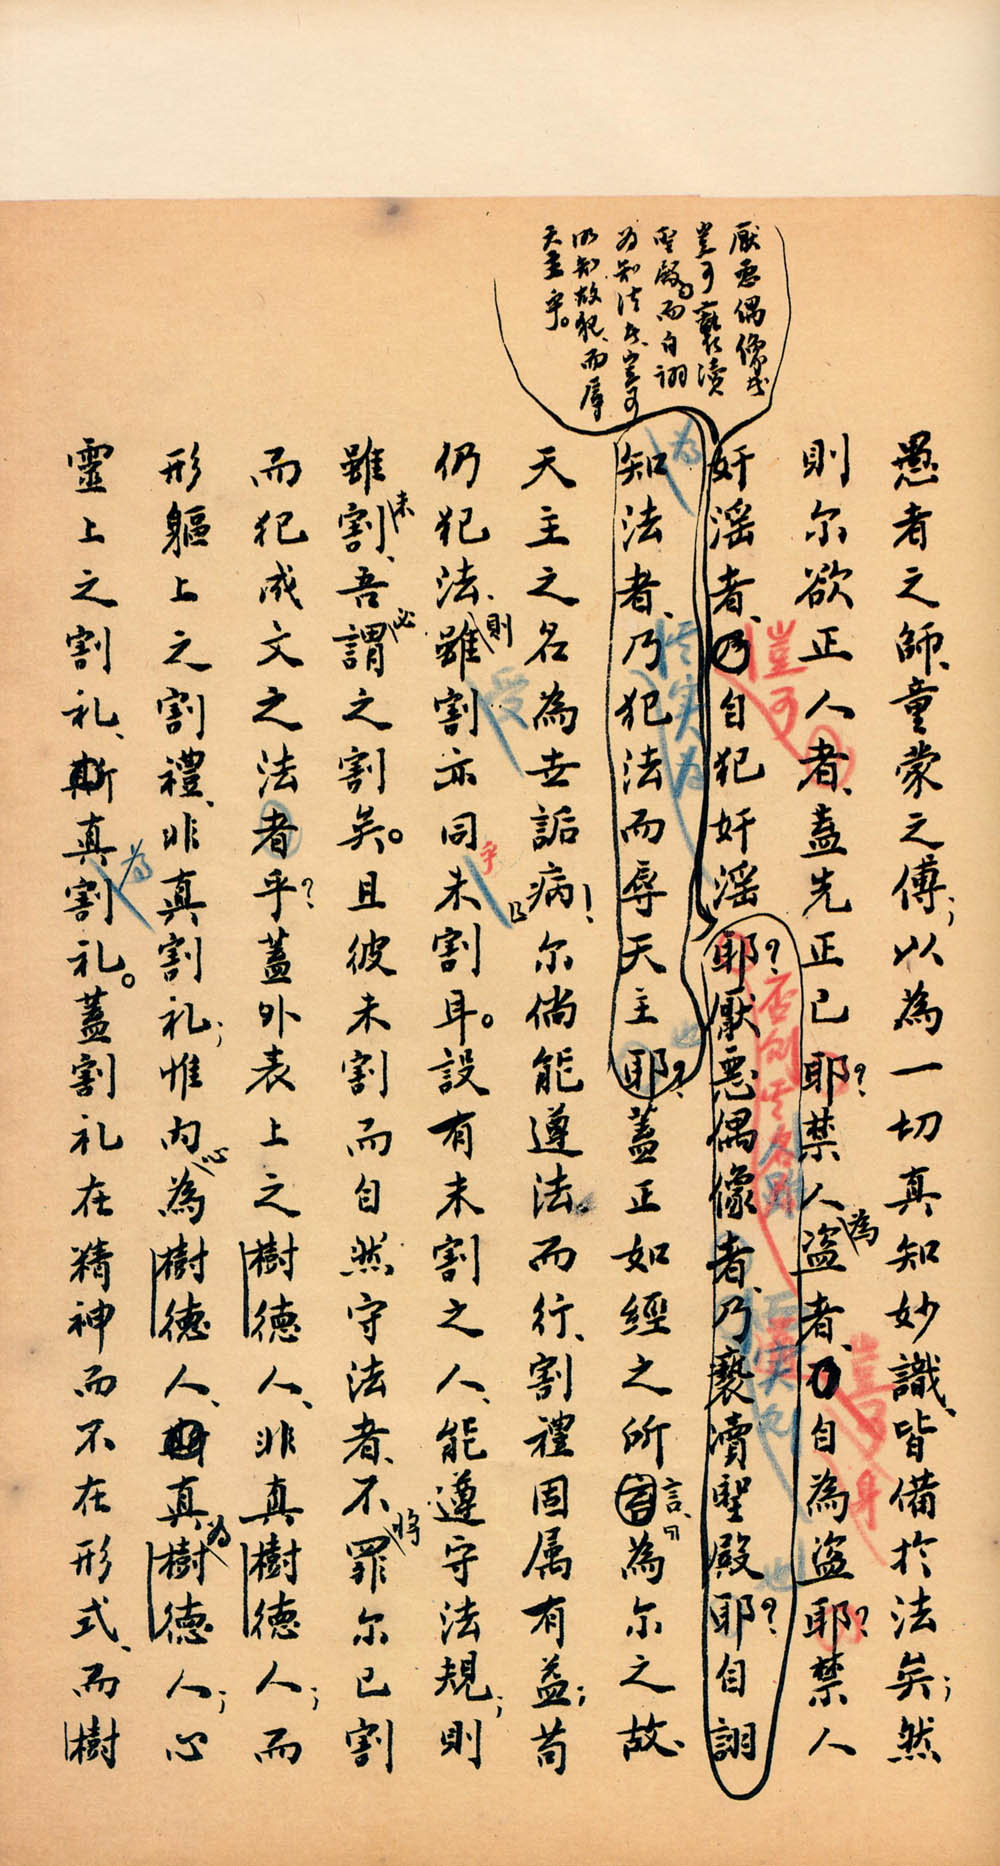 厭惡偶像者
豈可褻瀆
聖殿而自詡
為知法者豈可
明知故犯、而辱
天主乎。
愚者之師、童蒙之傅；以為一切真知妙識、皆備於法矣；然
則尔欲正人者、蓋先正己耶？禁人為盜者、乃自為盜耶？禁人
豈可身
奸淫者、乃自犯奸淫耶？厭惡偶像者、乃褻瀆聖殿耶？自詡
豈可
否則
也
為知法者、乃犯法而辱天主耶？蓋正如經之所言、為尔之故、
實為
也
天主之名為世詬病！尔倘能遵法而行、割禮固属有益；苟
仍犯法、則雖受割亦同未割耳。設有未割之人、能遵守法規；則
乎
雖未割、吾必謂之割矣。且彼未割而自然守法者、不將罪尔已割
而犯成文之法者乎？蓋外表上之樹德人、非真樹德人；而
形軀上之割禮、非真割礼；惟内心為樹德人、為真樹德人；心
靈上之割礼、斯為真割礼。蓋割礼在精神而不在形式、而樹